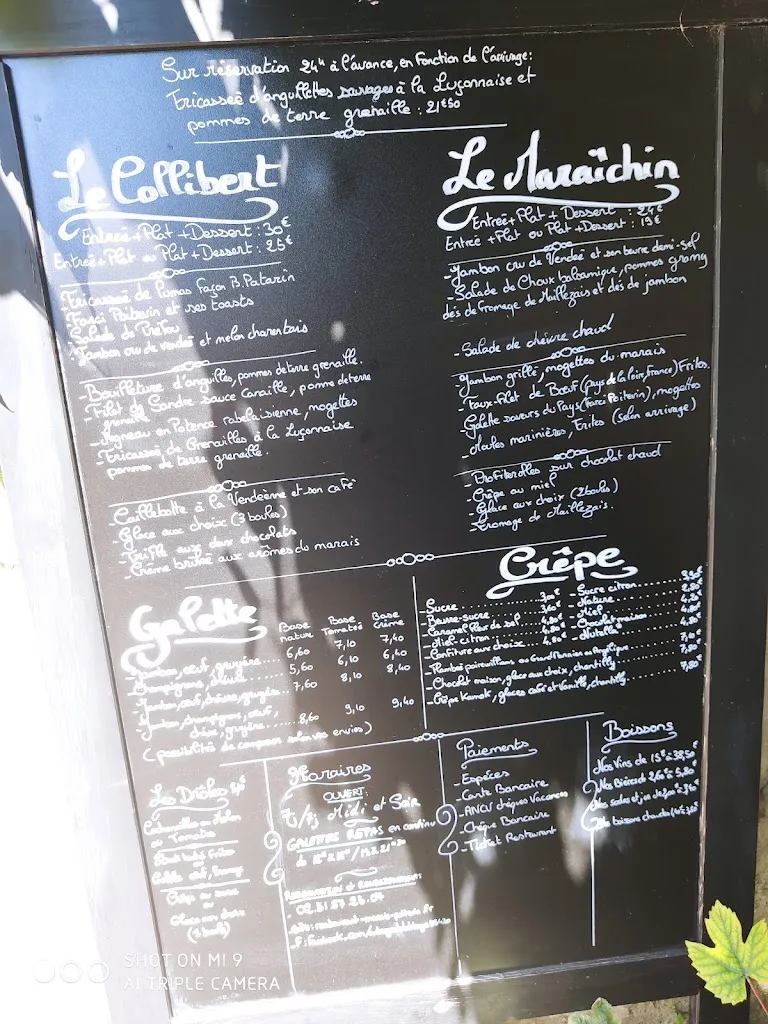 Sur réservation 24h à l'avance, en fonction de l'arrivage:
Fricassée d'anguillettes sauvages à la Luçonnaise et
pommes de terre grenaille : 21€50
Le Collibert
Entrée+Plat+Dessert: 30€
Entrée+Plat ou Plat+Dessert: 25€
Fricassée de Lumas façon B. Patarin
- Farci Poitevin et ses toasts
- Salade de Préfou
- Jambon cru de vendée et melon charentais
- Bouilleture d'anguilles, pommes de terre grenaille.
- Filet de Sandre sauce Canaille, pomme de terre
grenaille
- Agneau en Potence rabelaisienne, mogettes
- Fricassée de Grenailles à la Luçonnaise
pommes de terre grenaille.
- Caillebotte à la Vendéenne et son café
- Glace aux choix (3 boules)
- Truffe aux deux chocolats
- Crème brûlée aux arômes du marais
Le Maraîchin
Entrée+Plat+Dessert: 24€
Entrée+Plat ou Plat+Dessert: 19€
- Jambon cru de Vendée et son beurre demi-sel
- Salade de Choux balsamique, pommes granny
dés de fromage de Maillezais et dés de jambon
- Salade de chèvre chaud
- Jambon grillé, mogettes du marais
- Faux-Filet de Bœuf (pays de la loire, france) Frites.
- Galette saveurs du Pays (Farci Poitevin), mogettes
- Moules marinières, Frites (selon arrivage)
- Profiterolles sur chocolat chaud
- Crêpe au miel
- Glace aux choix (2 boules)
- Fromage de Maillezais.
Galette
Base nature Base Tomates Base Crème
- Jambon, œuf, gruyère.... 6,60 7,10 7,40
- Champignons, 5,60 6,10 6,40
- Jambon, œuf, chèvre, gruyère... 7,60 8,10 8,40
- Jambon, champignons, œuf,
chèvre, gruyère...... 8,60 9,10 9,40
(possibilité de composer selon vos envies)
Crêpe
- Sucre 3,00€
- Beurre-sucre 3,60€
- Caramel fleur de sel 4,80€
- Miel-citron
- Confiture aux choix 4,80€
- Sucre citron
- Nature
- Miel
- Chocolat maison
- Nutella
- Flambée poitevillaise au Grand Marnier ou Angélique
- Chocolat maison, glace aux choix, chantilly
- Crêpe Kamok, glaces café et Vanille, chantilly
Les Drôles
ou
Tomates
ou
ou
Glace aux choix
(1 boule)
Horaires
OUVERT:
7j/7j Midi et Soir
GALETTES REPAS en continu
02.51.87.26.07
Paiements
- Espèces
- Carte Bancaire
- ANCV chèques Vacances
- Chèque Bancaire
- Ticket Restaurant
Boissons
Nos Vins de 15€ à 38,50€
Nos Bières de 2,60€ à 5,80
SHOT ON MI 9
AI TRIPLE CAMERA